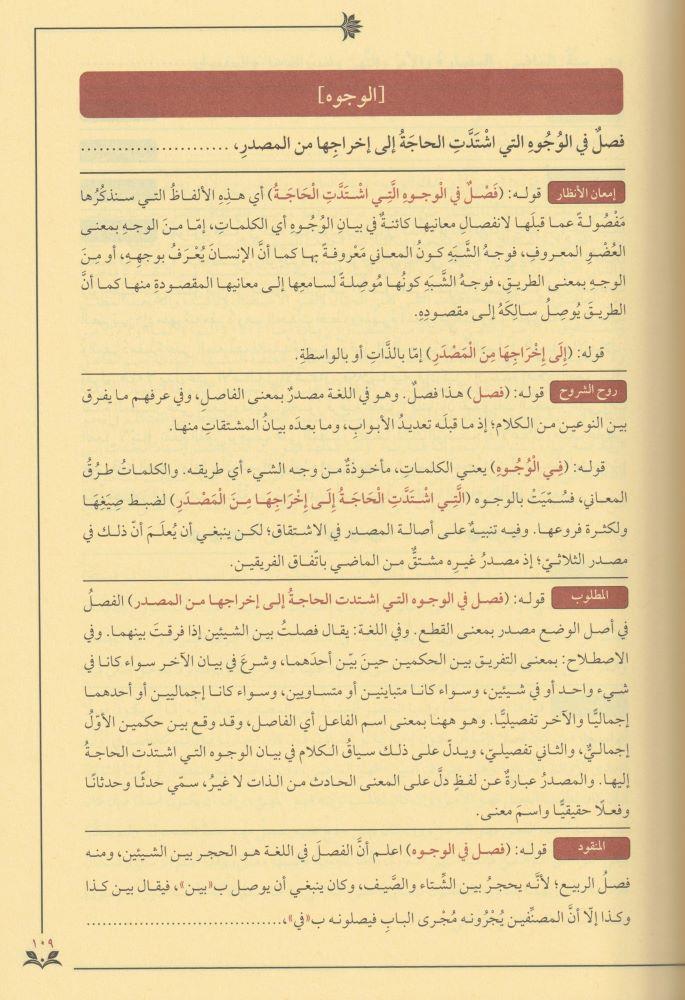 [الوجوه]
فصلٌ في الوُجُوهِ التي اشْتَدَّتِ الحاجَةُ إلى إخراجِها من المصدرِ، .........................
إمعان الأنظار قولـه: (فَصْـلٌ في الْوجـوهِ الَّتِـي اشْـتَدَّتِ الْحَاجَـةُ) أي هـذِهِ الألفـاظُ التـي سـنذكُرُها
مَفْصُولـةً عمـا قبلَهـا لانفصـالِ معانيهـا كائنـةٌ في بيـانِ الوُجُـوهِ أي الكلمـاتِ، إمّـا مـنَ الوجـهِ بمعنـى
العُضْـوِ المعـروفِ، فوجـهُ الشَّـبَهِ كـونُ المعانـي مَعْروفـةً بهـا كمـا أنَّ الإنسـانَ يُعْـرَفُ بوجهِـهِ، أو مِـنَ
الوجـهِ بمعنـى الطريـقِ، فوجـهُ الشَّـبَهِ كونُهـا مُوصِلـةً لسـامعِها إلـى معانيهـا المقصـودةِ منهـا كمـا أنَّ
الطريـقَ يُوصِـلُ سـالِكَهُ إلـى مقصـودِهِ.
قوله: (إِلَى إِخْرَاجِهَا مِنَ الْمَصْدَرِ) إمّا بالذَّاتِ أو بالواسطةِ.
روح الشروح قولـه: (فصـل) هـذا فصـلٌ. وهـو في اللغـة مصـدرٌ بمعنـى الفاصـلِ، وفي عرفهـم مـا يفـرق
بيـن النوعيـن مـن الـكلام؛ إذ مـا قبلَـه تعديـدُ الأبـوابِ، ومـا بعـدَه بيـانُ المشـتقاتِ منهـا.
قولـه: (فـي الْوُجُـوهِ) يعنـي الكلمـاتِ، مأخـوذةٌ مـن وجـه الشـيء أي طريقـه. والكلمـاتُ طـرُقُ
المعانـي، فسُـمِّيَتْ بالوجـوه (الَّتِـي اشْـتَدَّتْ الْحَاجَـةُ إِلَـى إِخْرَاجِهَـا مِـنَ الْمَصْـدَرِ) لضبـط صِيَغِهَـا
ولكثـرة فروعهـا. وفيـه تنبيـهٌ علـى أصالـة المصـدر في الاشـتقاق؛ لكـن ينبغـي أن يُعلَـمَ أنّ ذلـك في
مصـدر الثلاثـيّ؛ إذ مصـدرُ غيـرِه مشـتقٌّ مـن الماضـي باتّفـاق الفريقيـن.
المطلوب قولـه: (فصـل في الوجـوه التـي اشـتدت الحاجـةُ إلـى إخراجهـا مـن المصـدر) الفصـلُ
في أصـل الوضـع مصـدر بمعنـى القطـع. وفي اللغـة: يقـال فصلـتُ بيـن الشـيئين إذا فرقـتَ بينهمـا. وفي
الاصطـلاح: بمعنـى التفريـق بيـن الحكميـن حيـنَ بيّـن أحدَهمـا، وشـرعَ في بيـان الآخـر سـواء كانـا في
شـيء واحـد أو في شـيئين، وسـواء كانـا متباينيـن أو متسـاويين، وسـواء كانـا إجمالييـن أو أحدهمـا
إجماليًّـا والآخـر تفصيليًّـا. وهـو ههنـا بمعنـى اسـم الفاعـل أي الفاصـل، وقـد وقـع بيـن حكميـن الأوّلُ
إجمالـيٌّ، والثانـي تفصيلـيّ، ويـدلّ علـى ذلـك سـياقُ الـكلام في بيـان الوجـوه التـي اشـتدّت الحاجـةُ
إليهـا. والمصـدرُ عبـارةٌ عـن لفـظٍ دلَّ علـى المعنـى الحـادث مـن الـذات لا غيـرُ، سـمّي حدثًـا وحدثانًـا
وفعـلًا حقيقيًّـا واسـمَ معنـى.
المنقود قولـه: (فصـل في الوجـوه) اعلـم أنَّ الفصـلَ في اللغـة هـو الحجـر بيـن الشـيئين، ومنـه
فصـلُ الربيـع؛ لأنَّـه يحجـزُ بيـن الشِّـتاء والصَّيـف، وكان ينبغـي أن يوصـل ب«بيـن»، فيقـال بيـن كـذا
وكـذا إلّا أنَّ المصنِّفيـن يُجْرُونـه مُجْـرى البـابِ فيصلونـه ب«في»،.................................
١٠٩